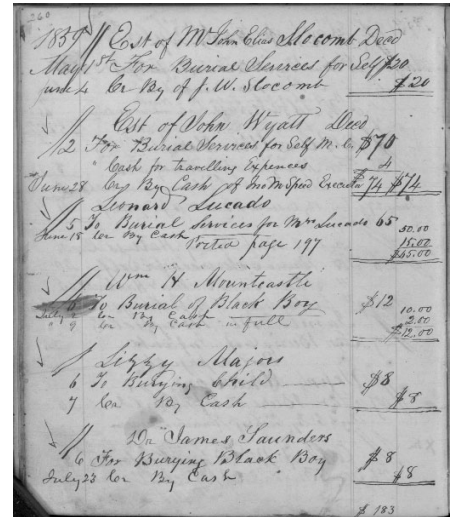 260
1859 Est of Mr John Elias Slocomb Decd
May 1st For Burial Services for Self $20
June 4 Cr By of J. W. Slocomb $20
Est of John Wyatt Decd
2 For Burial Services for Self M. C. $70
" Cash for travelling Expences 4
June 28 Cr By Cash of Jno M Speed Executor $74 $74
Leonard Lucado
5 To Burial Services for Mrs Lucado 65
June 15 Cr By Cash 50.00
Posted page 197 15.00
$65.00
Wm H. Mountcastle
6 To Burial of Black Boy $12
July 2 Cr By Cash 10.00
" 9 Cr By Cash in full 2.00
$12.00
Lizzy Majors
6 To Burying Child $8
7 Cr By Cash $8
Dr James Saunders
6 For Burying Black Boy $8
July 23 Cr By Cash $8
$183